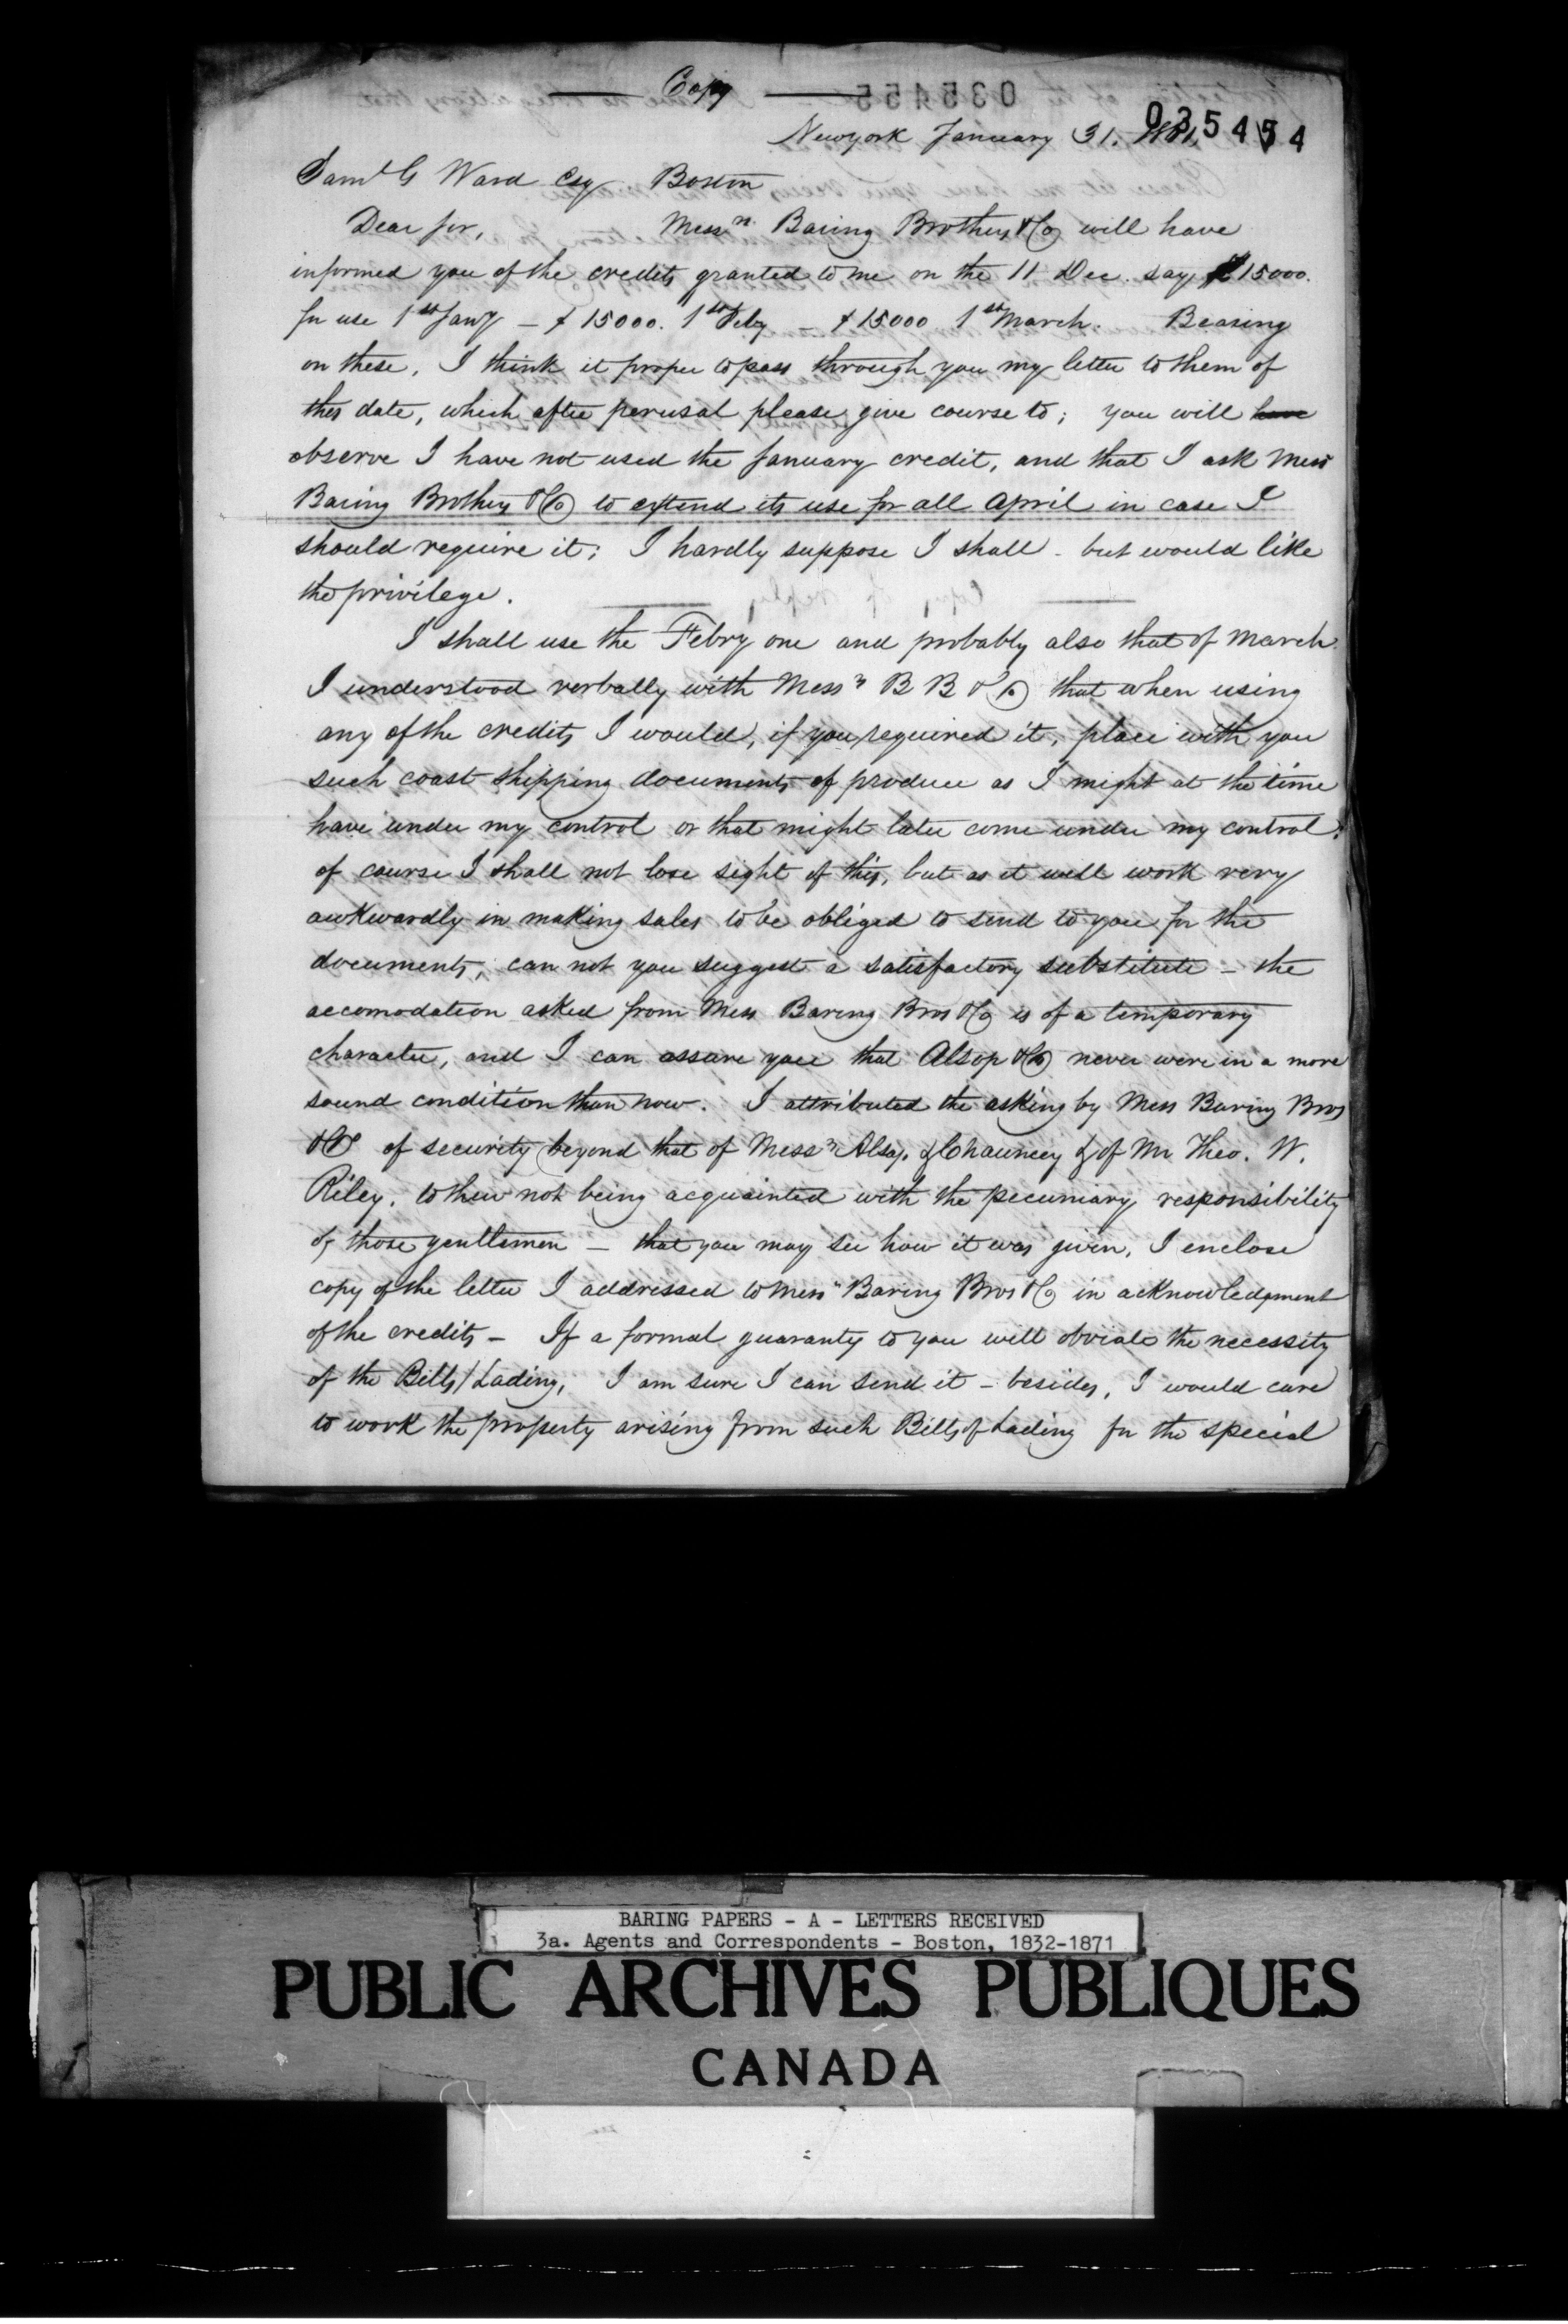 Copy
035454
Newyork January 31.
Saml G Ward Esq Boston
Dear Sir, Messrs Baring Brothers & Co will have
informed you of the credits granted to me on the 11 Dec. say £15000.
for use 1st Jany – £15000. 1st Feby – £15000 1st March. Bearing
on these, I think it proper to pass through you my letter to them of
this date, which after perusal please give course to; you will have
observe I have not used the January credit, and that I ask Mess
Baring Brothers & Co to extend its use for all April in case I
should require it; I hardly suppose I shall – but would like
the privilege.
I shall use the Febry one and probably also that of March.
I understood verbally with Messrs B B & Co that when using
any of the credits I would, if you required it, place with you
such coast shipping documents of produce as I might at the time
have under my control or that might later come under my control.
of course I shall not lose sight of this, but as it will work very
awkwardly in making sales to be obliged to send to you for the
documents, can not you suggest a satisfactory substitute – the
accomodation asked from Mess Baring Bros & Co is of a temporary
character, and I can assure you that Alsop & Co never were in a more
sound condition than now. I attributed the asking by Mess Baring Bros
& Co of security beyond that of Messrs Alsop & Chauncey & of Mr Theo. W.
Riley, to their not being acquainted with the pecuniary responsibility
of those gentlemen – that you may see how it was given, I enclose
copy of the letter I addressed to Messrs Baring Bros & Co in acknowledgment
of the credits – If a formal guaranty to you will obviate the necessity
of the Bills/Lading, I am sure I can send it – besides, I would care
to work the property arising from such Bills of Lading for the special
BARING PAPERS - A - LETTERS RECEIVED
3a. Agents and Correspondents - Boston, 1832-1871
PUBLIC ARCHIVES PUBLIQUES
CANADA